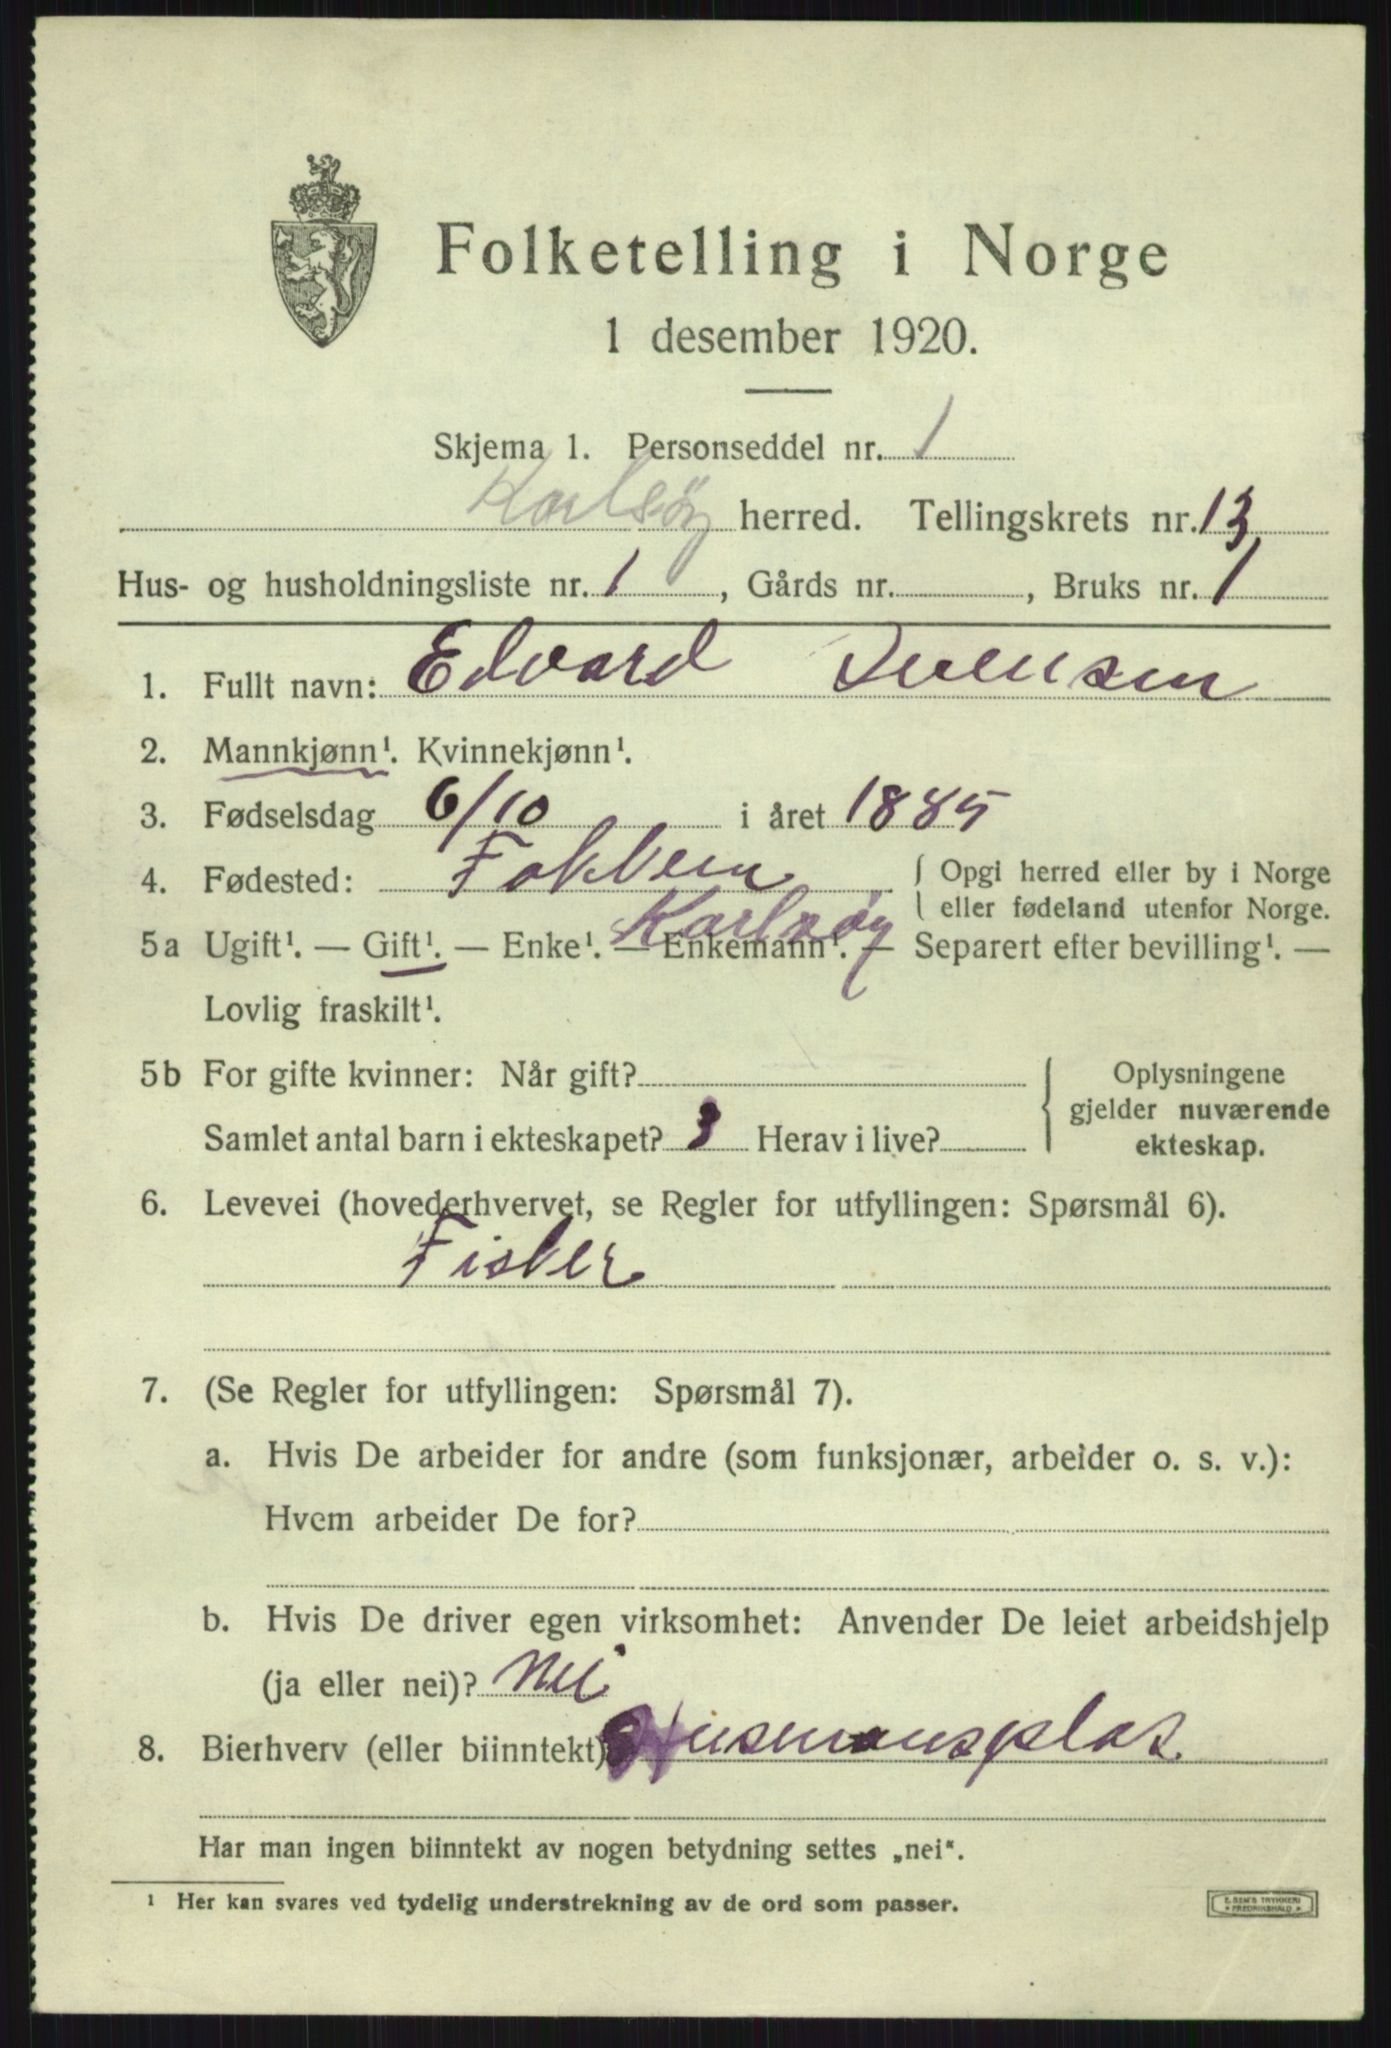 Folketelling i Norge
1 desember 1920.
Skjema 1. Personseddel nr. 1
Karlsøy herred. Tellingskrets nr. 13
Hus- og husholdningsliste nr. 1, Gårds nr. , Bruks nr. 1
1. Fullt navn: Edvard Svensen
2. Mannkjønn¹. Kvinnekjønn¹.
3. Fødselsdag 6/10 i året 1885
4. Fødested: Karlsøy { Opgi herred eller by i Norge
eller fødeland utenfor Norge.
5a Ugift¹. — Gift¹. — Enke¹. — Enkemann¹. — Separert efter bevilling¹. —
Lovlig fraskilt¹.
5b For gifte kvinner: Når gift?
Samlet antal barn i ekteskapet? 3 Herav i live?
{ Oplysningene
gjelder nuværende
ekteskap.
6. Levevei (hovederhvervet, se Regler for utfyllingen: Spørsmål 6).
Fisker
7. (Se Regler for utfyllingen: Spørsmål 7).
a. Hvis De arbeider for andre (som funksjonær, arbeider o. s. v.):
Hvem arbeider De for?
b. Hvis De driver egen virksomhet: Anvender De leiet arbeidshjelp
(ja eller nei)? Nei
8. Bierhverv (eller biinntekt) Husmansplas
Har man ingen biinntekt av nogen betydning settes „nei“.
¹ Her kan svares ved tydelig understrekning av de ord som passer.
E. SEM'S TRYKKERI
* FREDRIKSHALD *